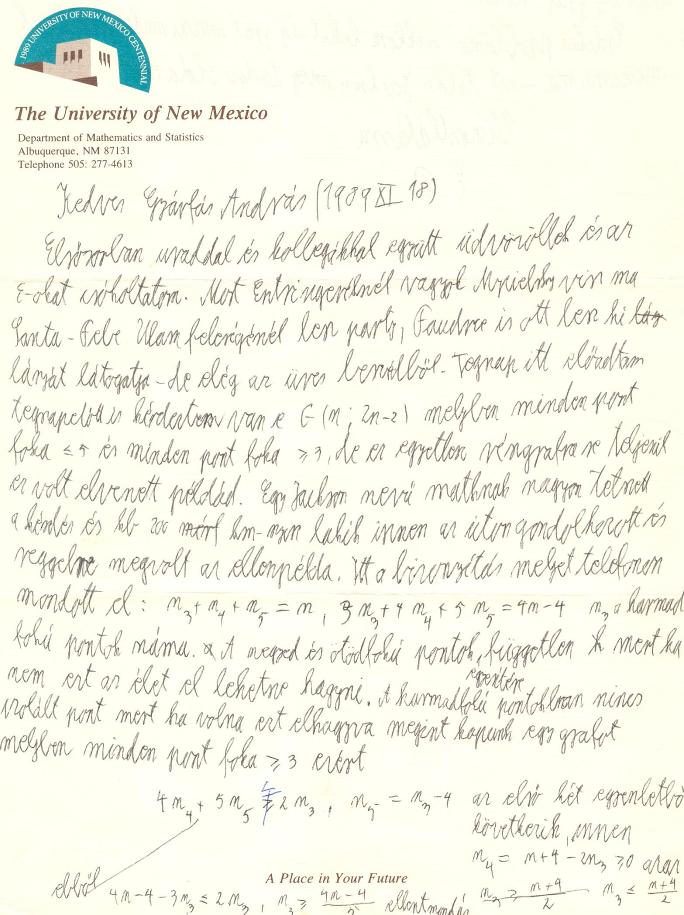 1989 UNIVERSITY OF NEW MEXICO CENTENNIAL
The University of New Mexico
Department of Mathematics and Statistics
Albuquerque, NM 87131
Telephone 505: 277-4613
Kedves Gyárfás András (1989 XI 18)
Elsősorban uraddal és kollegákkal együtt üdvözöllek és az
ε-okat csókoltatom. Most Entringeréknél vagyok Mycielsky visz ma
Santa-Febe Ulam feleségénél lesz party, Faudree is ott lesz ki
lányát látogatja - de elég az üres beszédből. Tegnap itt előadtam
tegnapelőtt is kérdeztem van e G(n; 2n-2) melyben minden pont
foka ≤ 5 és minden pont foka ≥ 3, de ez egyetlen részgrafra se teljesül
ez volt elveszett példád. Egy Jackson nevű mathnak nagyon tetszett
a kérdés és kb 200 km-nyire lakik innen az úton gondolkozott és
reggelre megvolt az ellenpélda. Itt a bizonyítás melyet telefonon
mondott el: n₃ + n₄ + n₅ = n, 3n₃ + 4n₄ + 5n₅ = 4n-4 n₃ a harmad
fokú pontok száma. A negyed és ötödfokú pontok függetlenek mert ha
nem ezt az élet el lehetne hagyni. A harmadfokú pontokban nincs
izolált pont mert ha volna ezt elhagyva megint kapunk egy grafot
melyben minden pont foka ≥ 3 ezért
4n₄ + 5n₅ 2n₃, n₅ = n₃-4 az első két egyenletből
következik, innen
n₄ = n+4-2n₃ ≥ 0 azaz
A Place in Your Future
ebből 4n-4-3n₃ ≤ 2n₃, n₃ ≥ ellentmondás n₃ ≤ (n+4)/2